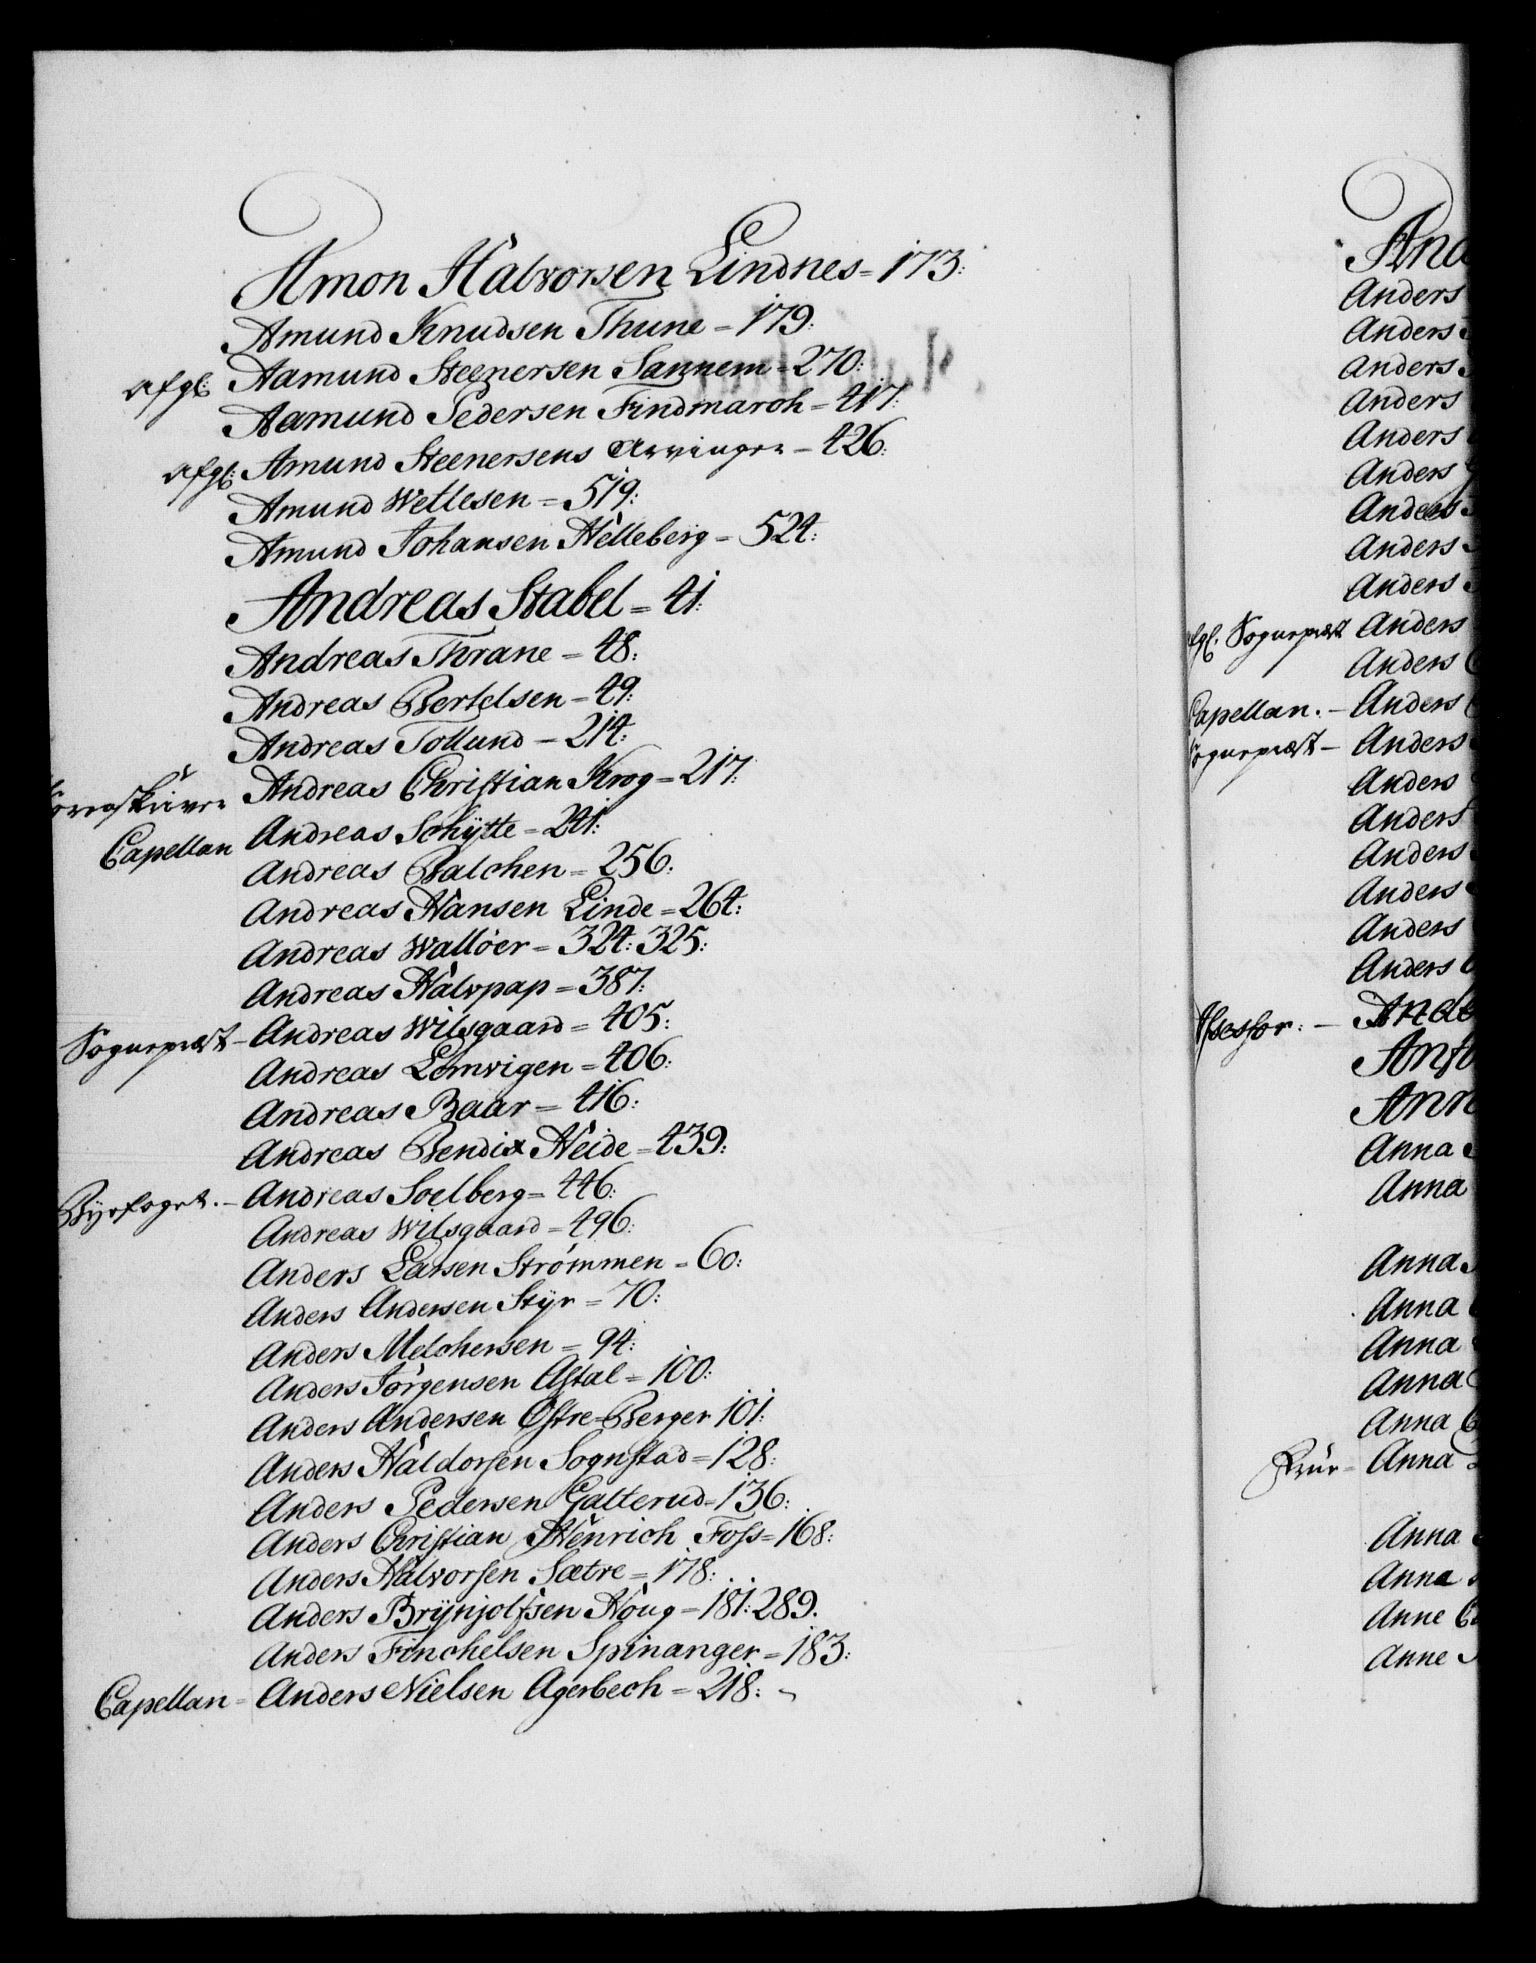 Amon Halvorsen Lindnes = 173:
Amund Knudsen Thune = 179:
afgl: Aamund Steenersen Sannem = 270:
Aamund Pedersen Findmarch = 417:
afgl: Amund Steenersens Arvinger = 426:
Amund Wetlesen = 519:
Amund Johansen Helleberg = 524:
Andreas Stabel = 41:
Andreas Thrane = 48:
Andreas Bertelsen = 49:
Andreas Tollund = 214:
Andreas Christian Krog = 217:
Capellan Andreas Schytte = 241:
Andreas Balchen = 256:
Andreas Hansen Linde = 264:
Andreas Wallöer = 324: 325:
Andreas Halvpap = 387:
Sognepræst - Andreas Wilsgaard = 405:
Andreas Lemvigen = 406:
Andreas Baar = 416:
Andreas Bendix Heide = 439:
Byefoget. - Andreas Soelberg = 446:
Andreas Wilsgaard = 496:
Anders Larsen Strømmen = 60:
Anders Andersen Styr = 70:
Anders Melchersen = 94:
Anders Jörgensen Astal = 100:
Anders Andersen Østre-Berger 101:
Anders Haldorsen Sognstad = 128:
Anders Pedersen Galterud = 136:
Anders Christian Henrich Foss = 168:
Anders Halvorsen Sætre = 178:
Anders Brynjolfsen Houg = 181: 289.
Anders Finchelsen Spinanger = 183:
Capellan = Anders Nielsen Agerbech = 218:
Anders
Anders
Anders
Anders
Anders
Anders
Anders
Anders
Anders
Sognepræst Anders
Anders
Capellan. - Anders
Sognepræst - Anders
Anders
Anders
Anders
Anders
Anders
Anders
Assessor: -
Anna
Anna
Anna
Anna
Anna
Anna
Anna
Frue - Anna
Anna
Anna
Anne
Anne